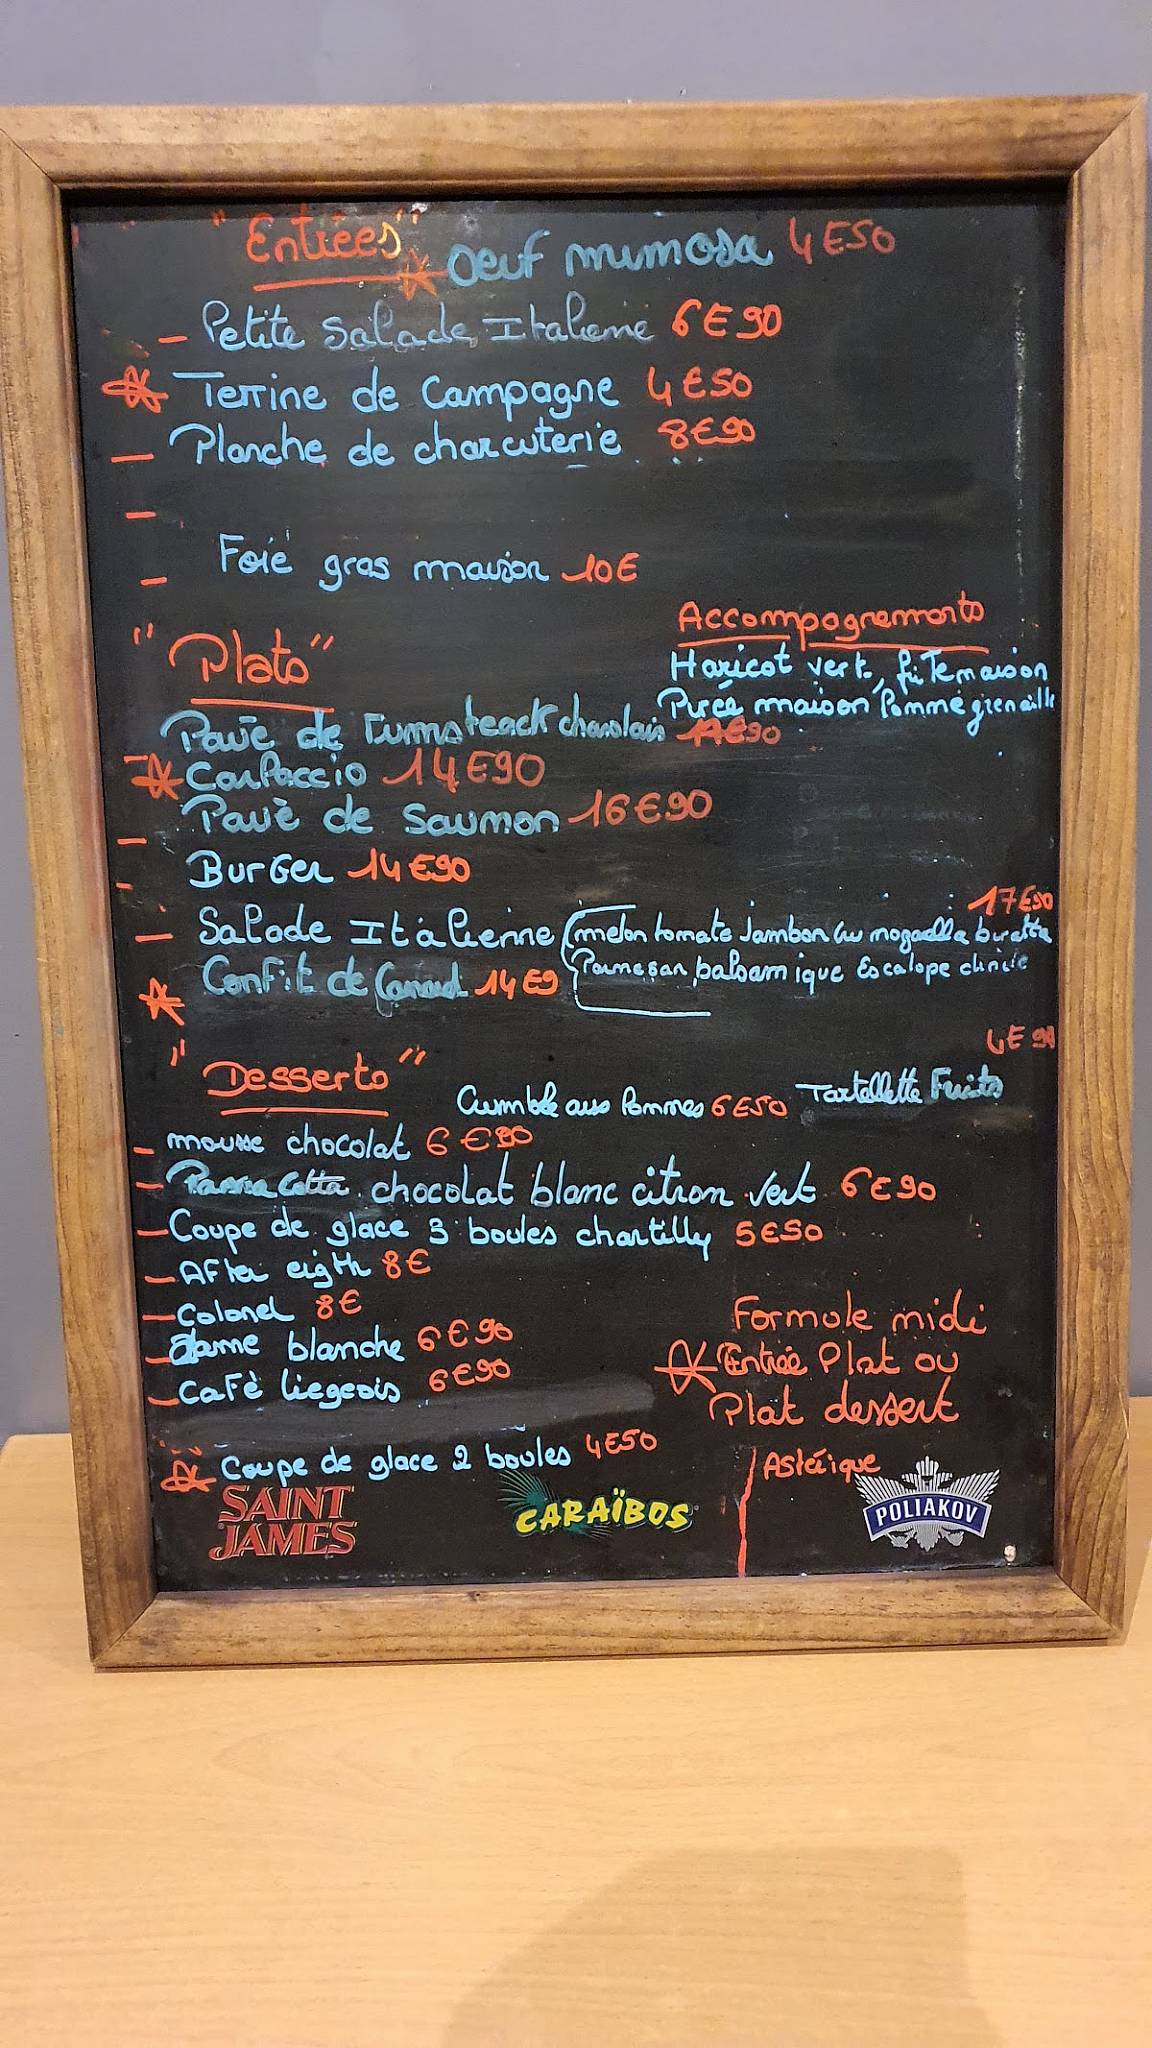 "Entrées"
oeuf mimosa 4E50
- Petite Salade Italiene 6€90
Terrine de Campagne 4€50
- Planche de charcuterie 8€90
-
- Foie gras maison 10€
"Plats"
Accompagnements
Haricot vert, frite maison
Purée maison Pomme grenaille
Pavé de rumsteack charolais €90
- Carpaccio 14€90
Pavé de Saumon 16€90
-
- Burger 14€90
17€90
- Salade Italienne (melon tomate jambon cru buratta
Parmesan balsamique Escalope
Confit de Canard 14€9
"Desserts"
4E90
Crumble aux Pommes 6E50 Tartellette Fruits
- mousse chocolat 6€90
- Panna Cotta chocolat blanc citron vert 6€90
- Coupe de glace 3 boules chantilly 5€50
- After eigth 8€
- Colonel 8€
- dame blanche 6€90
- Café liegeois 6€90
Formule midi
Entrée Plat ou
Plat dessert
Astérique
Coupe de glace 2 boules 4€50
SAINT JAMES
CARAÏBOS
POLIAKOV